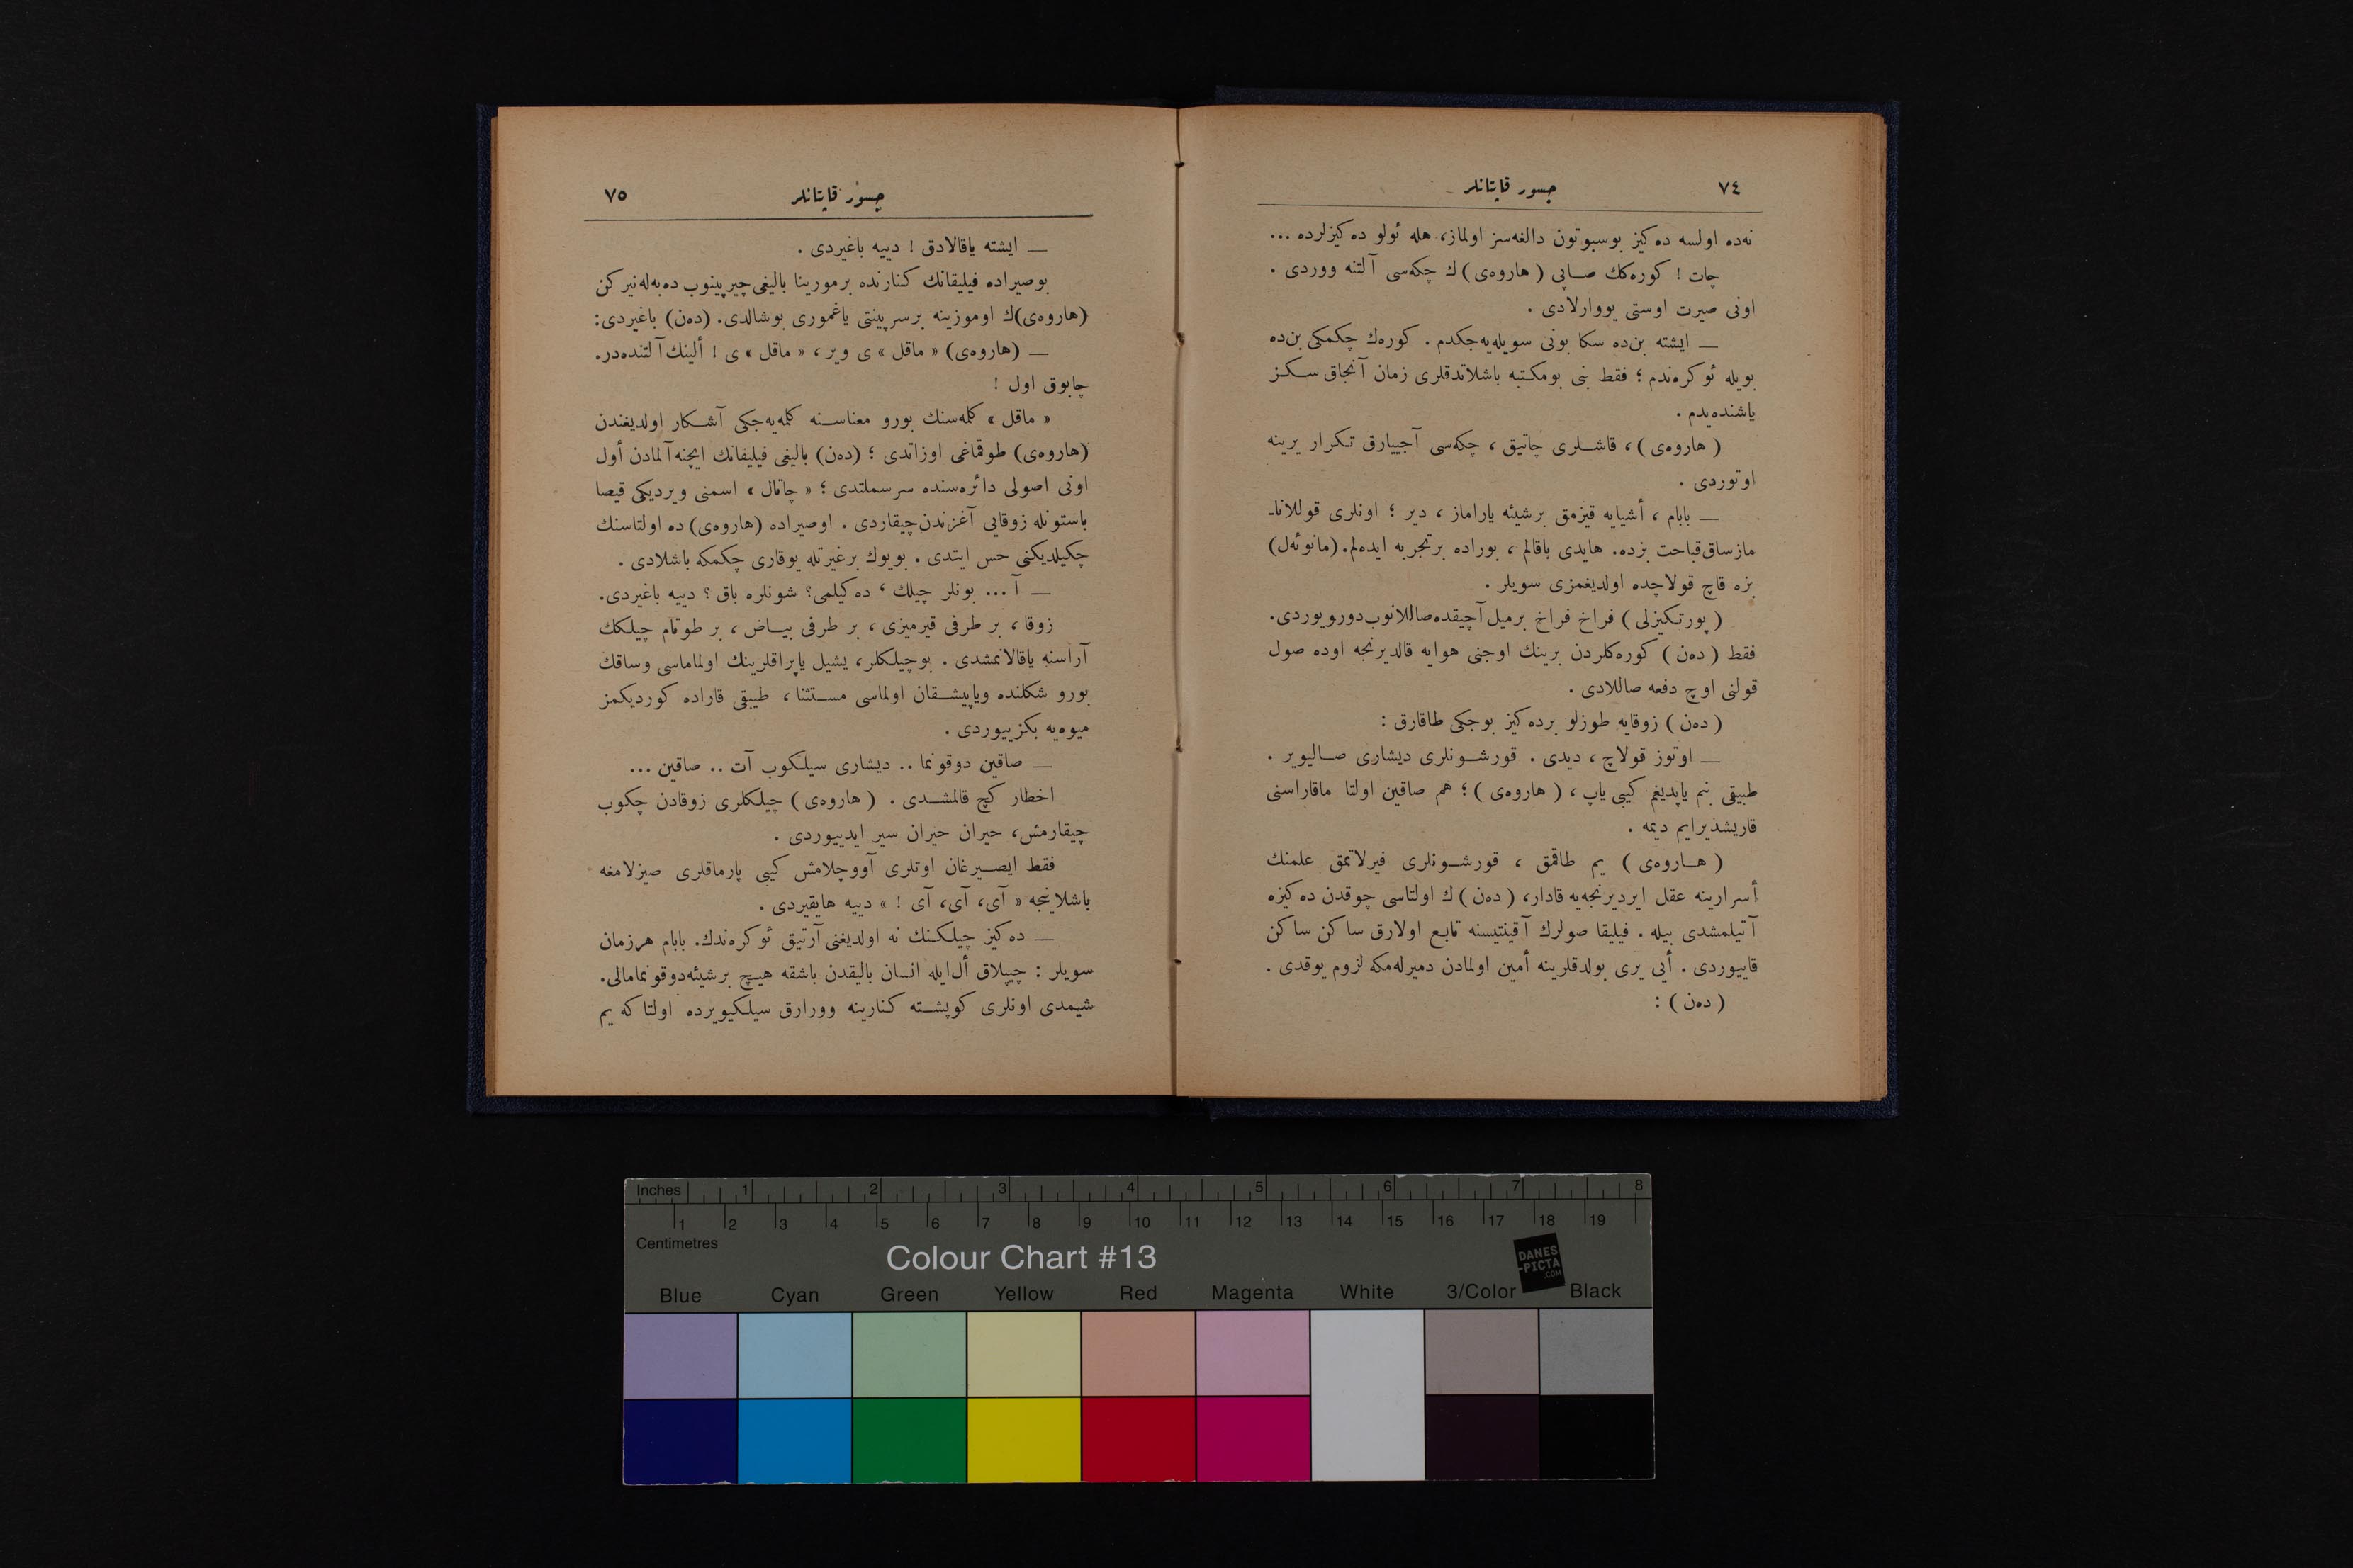 ٧٤
جسور قاپتانلر
نه‌ده اولسه ده‌كیز بوسبوتون دالغه‌سز اولماز، هله ئولو ده‌كیزلرده ...
چات ! كوره‌كك صاپی ( هاروه‌ی ) ك چكه‌سی آلتنه ووردی .
اونی صیرت اوستی یووارلادی .
— ایشته بن‌ده سكا بونی سویله‌یه‌جكدم . كوره‌ك چكمكی بن‌ده
بویله ئوكره‌ندم ؛ فقط بنی بومكتبه باشلاتدقلری زمان آنجاق سكز
یاشنده‌یدم .
( هاروه‌ی ) ، قاشلری چاتیق ، چكه‌سی آجییارق تكرار یرینه
اوتوردی .
— بابام ، أشیایه قیزمق برشیئه یاراماز ، دیر ؛ اونلری قوللانا-
مازساق قباحت بزده. هایدی باقالم ، بوراده برتجربه ایده‌لم. (مانوئه‌ل)
بزه قاچ قولاچده اولدیغمزی سویلر .
( پورتكیزلی ) فراخ فراخ برمیل آچیقده صاللانوب دورویوردی.
فقط ( ده‌ن ) كوره‌كلردن برینك اوجنی هوایه قالدیرنجه اوده صول
قولنی اوچ دفعه صاللادی .
( ده‌ن ) زوقایه طوزلو برده‌كیز بوجكی طاقارق :
— اوتوز قولاچ ، دیدی . قورشونلری دیشاری صالیویر .
طبیقی بنم یاپدیغم كیبی یاپ ، ( هاروه‌ی ) ؛ هم صاقین اولتا ماقاراسنی
قاریشدیرایم دیمه .
( هاروه‌ی ) یم طاقمق ، قورشونلری فیرلاتمق علمنك
أسرارینه عقل ایردیرنجه‌یه قادار، ( ده‌ن ) ك اولتاسی چوقدن ده‌كیزه
آتیلمشدی بیله . فیلیقا صولرك آقینتیسنه تابع اولارق ساكن ساكن
قاییوردی . أیی یری بولدقلرینه أمین اولمادن دمیرله‌مكه لزوم یوقدی .
( ده‌ن ) :
جسور قاپتانلر
٧٥
— ایشته یاقالادق ! دییه باغیردی .
بوصیراده فیلیقانك كنارنده برمورینا بالیغی چیرپینوب ده‌به‌له‌نیركن
(هاروه‌ی)ك اوموزینه برسرپینتی یاغموری بوشالدی. (ده‌ن) باغیردی:
— (هاروه‌ی) « ماقل » ی ویر ، « ماقل » ی ! ألینك آلتنده‌در.
چابوق اول !
« ماقل » كلمه‌سنك بورو معناسنه كلمه‌یه‌جكی آشكار اولدیغندن
(هاروه‌ی) طوقماغی اوزاتدی ؛ (ده‌ن) بالیغی فیلیقانك ایچنه آلمادن أول
اونی اصولی دائره‌سنده سرسملتدی ؛ « چاتال » اسمنی ویردیكی قیصا
باستونله زوقایی آغزندن چیقاردی . اوصیراده (هاروه‌ی) ده اولتاسنك
چكیلدیكنی حس ایتدی . بویوك برغیرتله یوقاری چكمكه باشلادی .
— آ ... بونلر چیلك ، ده‌كیلمی؟ شونلره باق ؟ دییه باغیردی.
زوقا ، بر طرفی قیرمیزی ، بر طرفی بیاض ، بر طوتام چیلكك
آراسنه یاقالانمشدی . بوچیلكلر، یشیل یاپراقلرینك اولماماسی وساقك
بورو شكلنده ویاپیشقان اولماسی مستثنا ، طیبقی قاراده كوردیكمز
میوه‌یه بكزییوردی .
— صاقین دوقونما .. دیشاری سیلكوب آت .. صاقین ...
اخطار كچ قالمشدی . ( هاروه‌ی ) چیلكلری زوقادن چكوب
چیقارمش، حیران حیران سیر ایدییوردی .
فقط ایصیرغان اوتلری آووچلامش كیبی پارماقلری صیزلامغه
باشلاینجه « آی، آی، آی ! » دییه هایقیردی .
— ده‌كیز چیلكنك نه اولدیغنی آرتیق ئوكره‌ندك. بابام هرزمان
سویلر : چیپلاق أل‌ایله انسان بالیقدن باشقه هیچ برشیئه دوقونمامالی.
شیمدی اونلری كوپشته كنارینه وورارق سیلكیویرده اولتاكه یم
Inches 1 2 3 4 5 6 7 8
1 2 3 4 5 6 7 8 9 10 11 12 13 14 15 16 17 18 19
Centimetres
Colour Chart #13
DANES
-PICTA
.COM
Blue Cyan Green Yellow Red Magenta White 3/Color Black